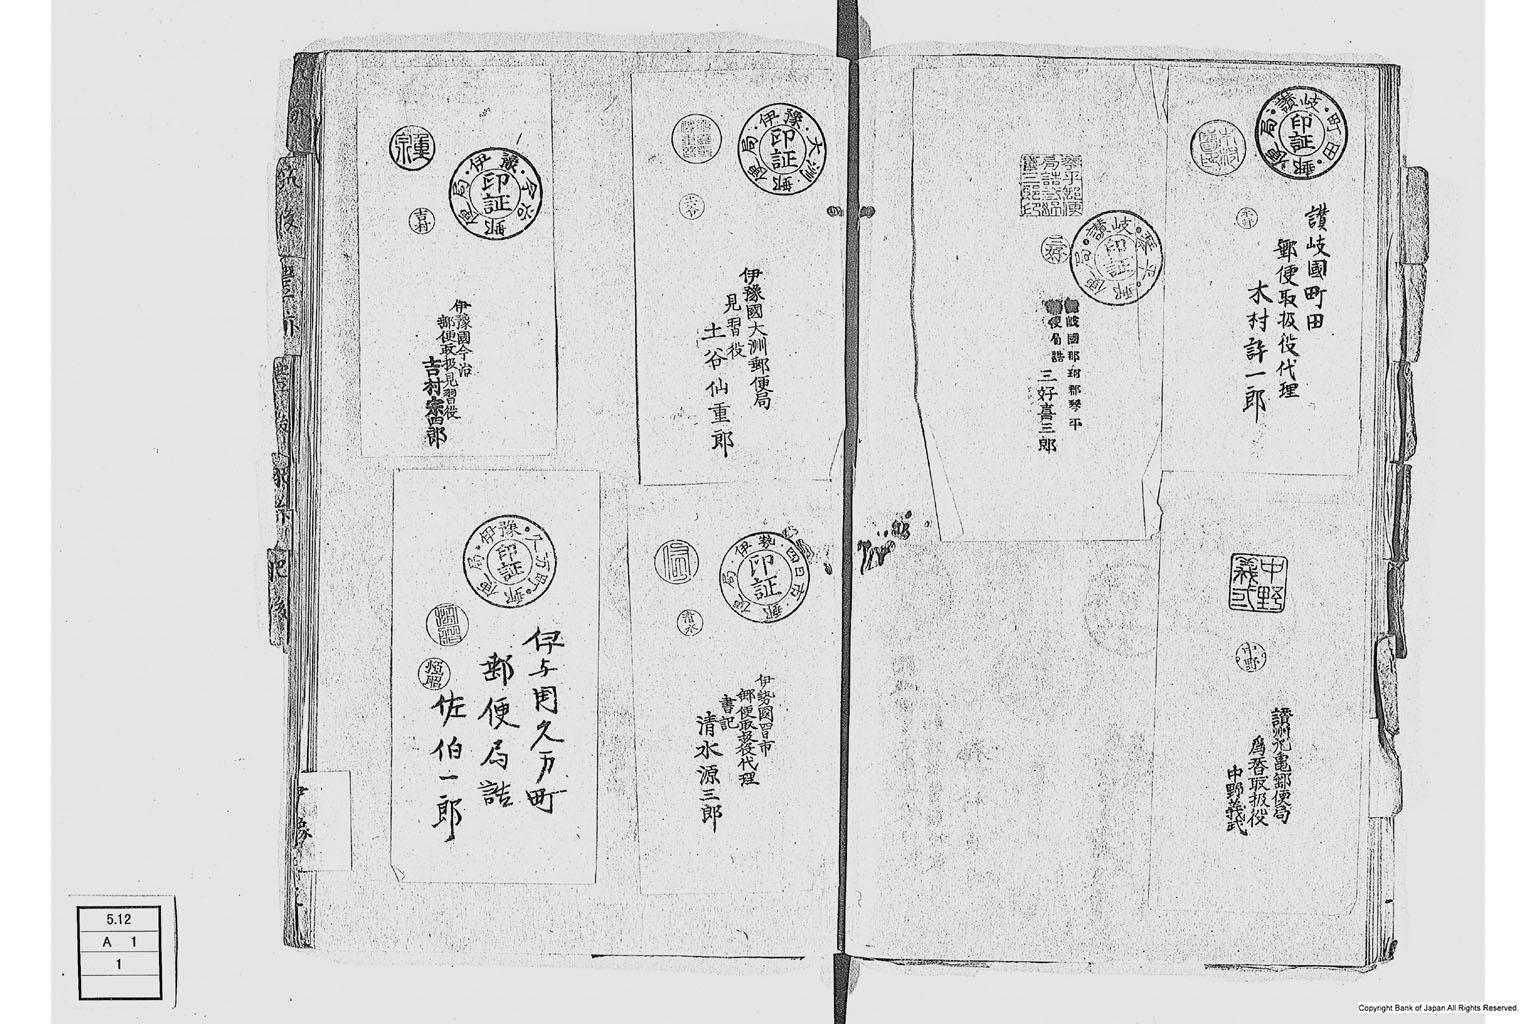 讃岐・町田・郵便局
印証
讃岐國町田
郵便取扱役代理
木村許一郎
中野義武
中野
讃州丸亀郵便局
為替取扱役
中野義武
讃岐・琴平・郵便局
印証
三好
岐國那珂郡琴平
便局詰
三好喜三郎
伊豫・大洲・郵便局
印証
土谷
伊豫國大洲郵便局
見習役
土谷仙重郎
伊勢・四日市・郵便局
印証
清水
伊勢國四日市
郵便取扱役代理
書記
清水源三郎
伊豫・今治・郵便局
印証
吉村
伊豫國今治
郵便取扱見習役
吉村宗四郎
伊豫・久万町・郵便局
印証
伊与国久万町
郵便局詰
佐伯一郎
5.12
A 1
1
Copyright Bank of Japan All Rights Reserved.